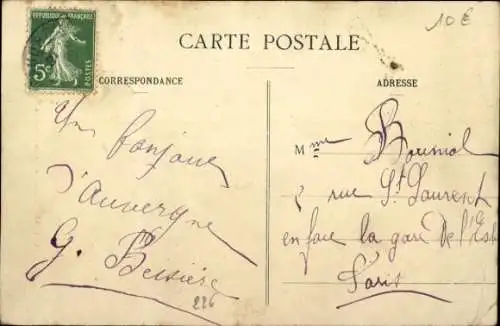 10€
REPUBLIQUE FRANÇAISE
5c
POSTES
CARTE POSTALE
CORRESPONDANCE
ADRESSE
Un bonjour
d'Auvergne
G. Bessière
226
Mme Bouniol
rue St Laurent
en face la gare de l'Est
Paris